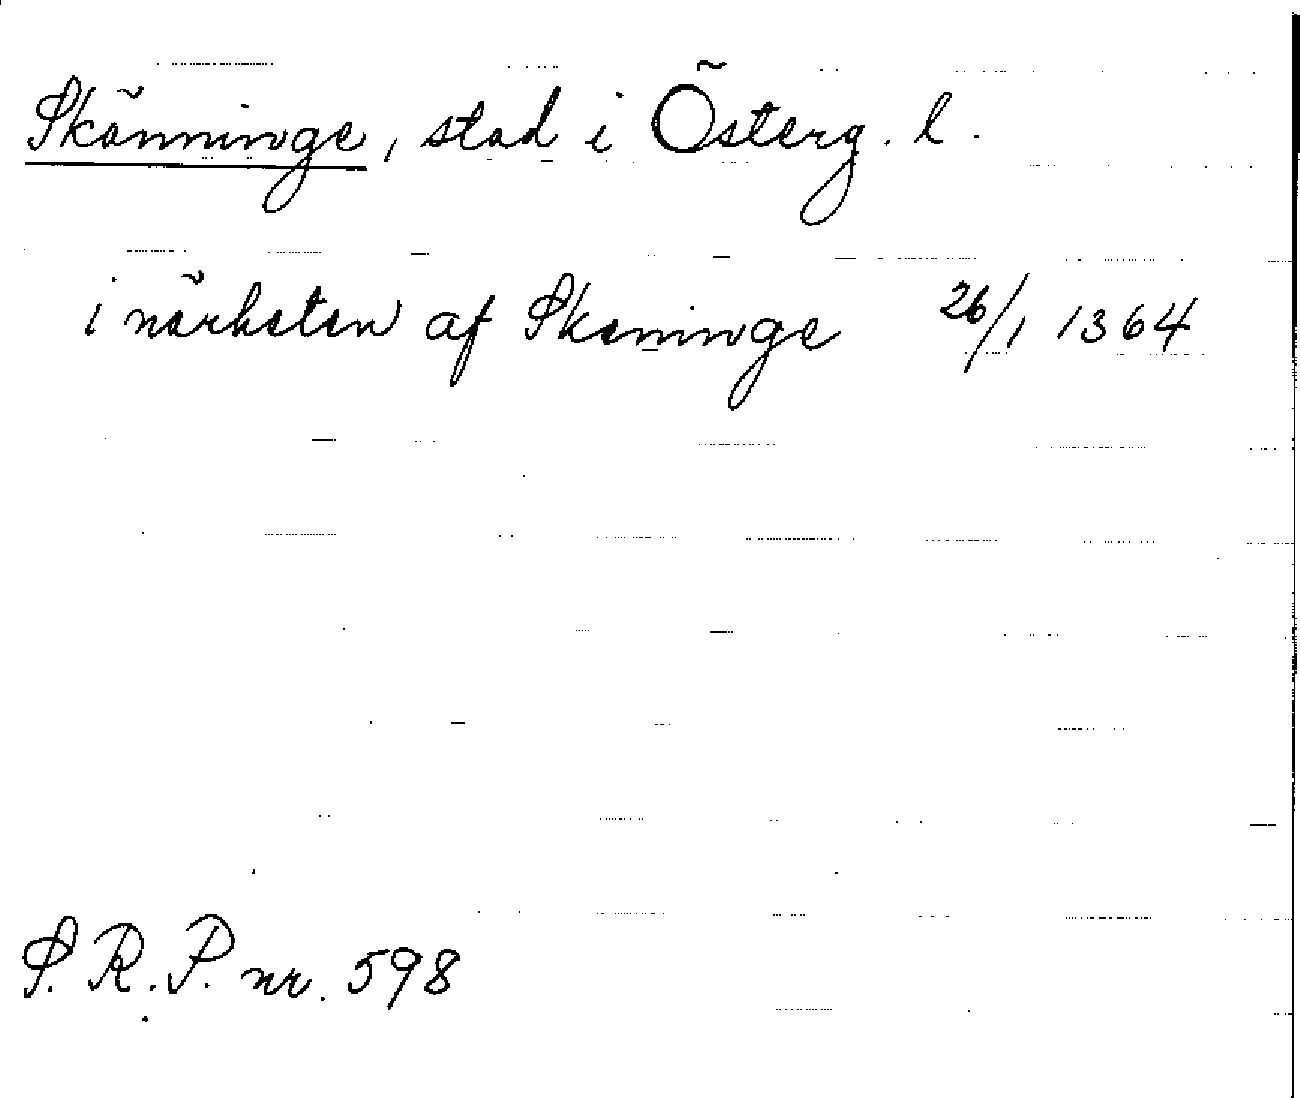 Skänninge, stad i Österg. l.
i närheten af Skeninge 26/1 1364
S. R. P. nr. 598